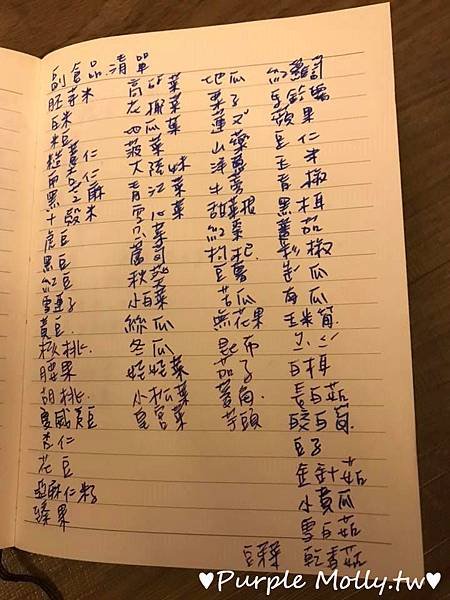 副食品.清單
胚芽米
白米
米豆
糙薏仁
南杏仁
黑芝麻
十穀米
虎豆
黑豆
紅豆
雪蓮子
黃豆
核桃.
腰果
胡桃.
夏威夷豆
杏仁
花豆
亞麻仁籽
榛果
高麗菜
大陸菜
地瓜葉
菠菜
大陸妹
青江菜
空心菜
萵苣
秋葵
小白菜
絲瓜
冬瓜
娃娃菜
小松菜
皇宮菜
地瓜
栗子
蓮子
山藥
洋蔥
牛蒡
甜菜根
紅棗
枸杞
豆薯
苦瓜
無花果
昆布
茄子
菱角
芋頭
紅蘿蔔
馬鈴薯
蘋果
豆仁
玉米
青椒
黑木耳
蕃茄
彩椒
南瓜
玉米筍
白木耳
長白菇
皎白筍
豆子
金針菇
小黃瓜
雪白菇
豆苗 乾香菇
♥Purple Molly.tw♥